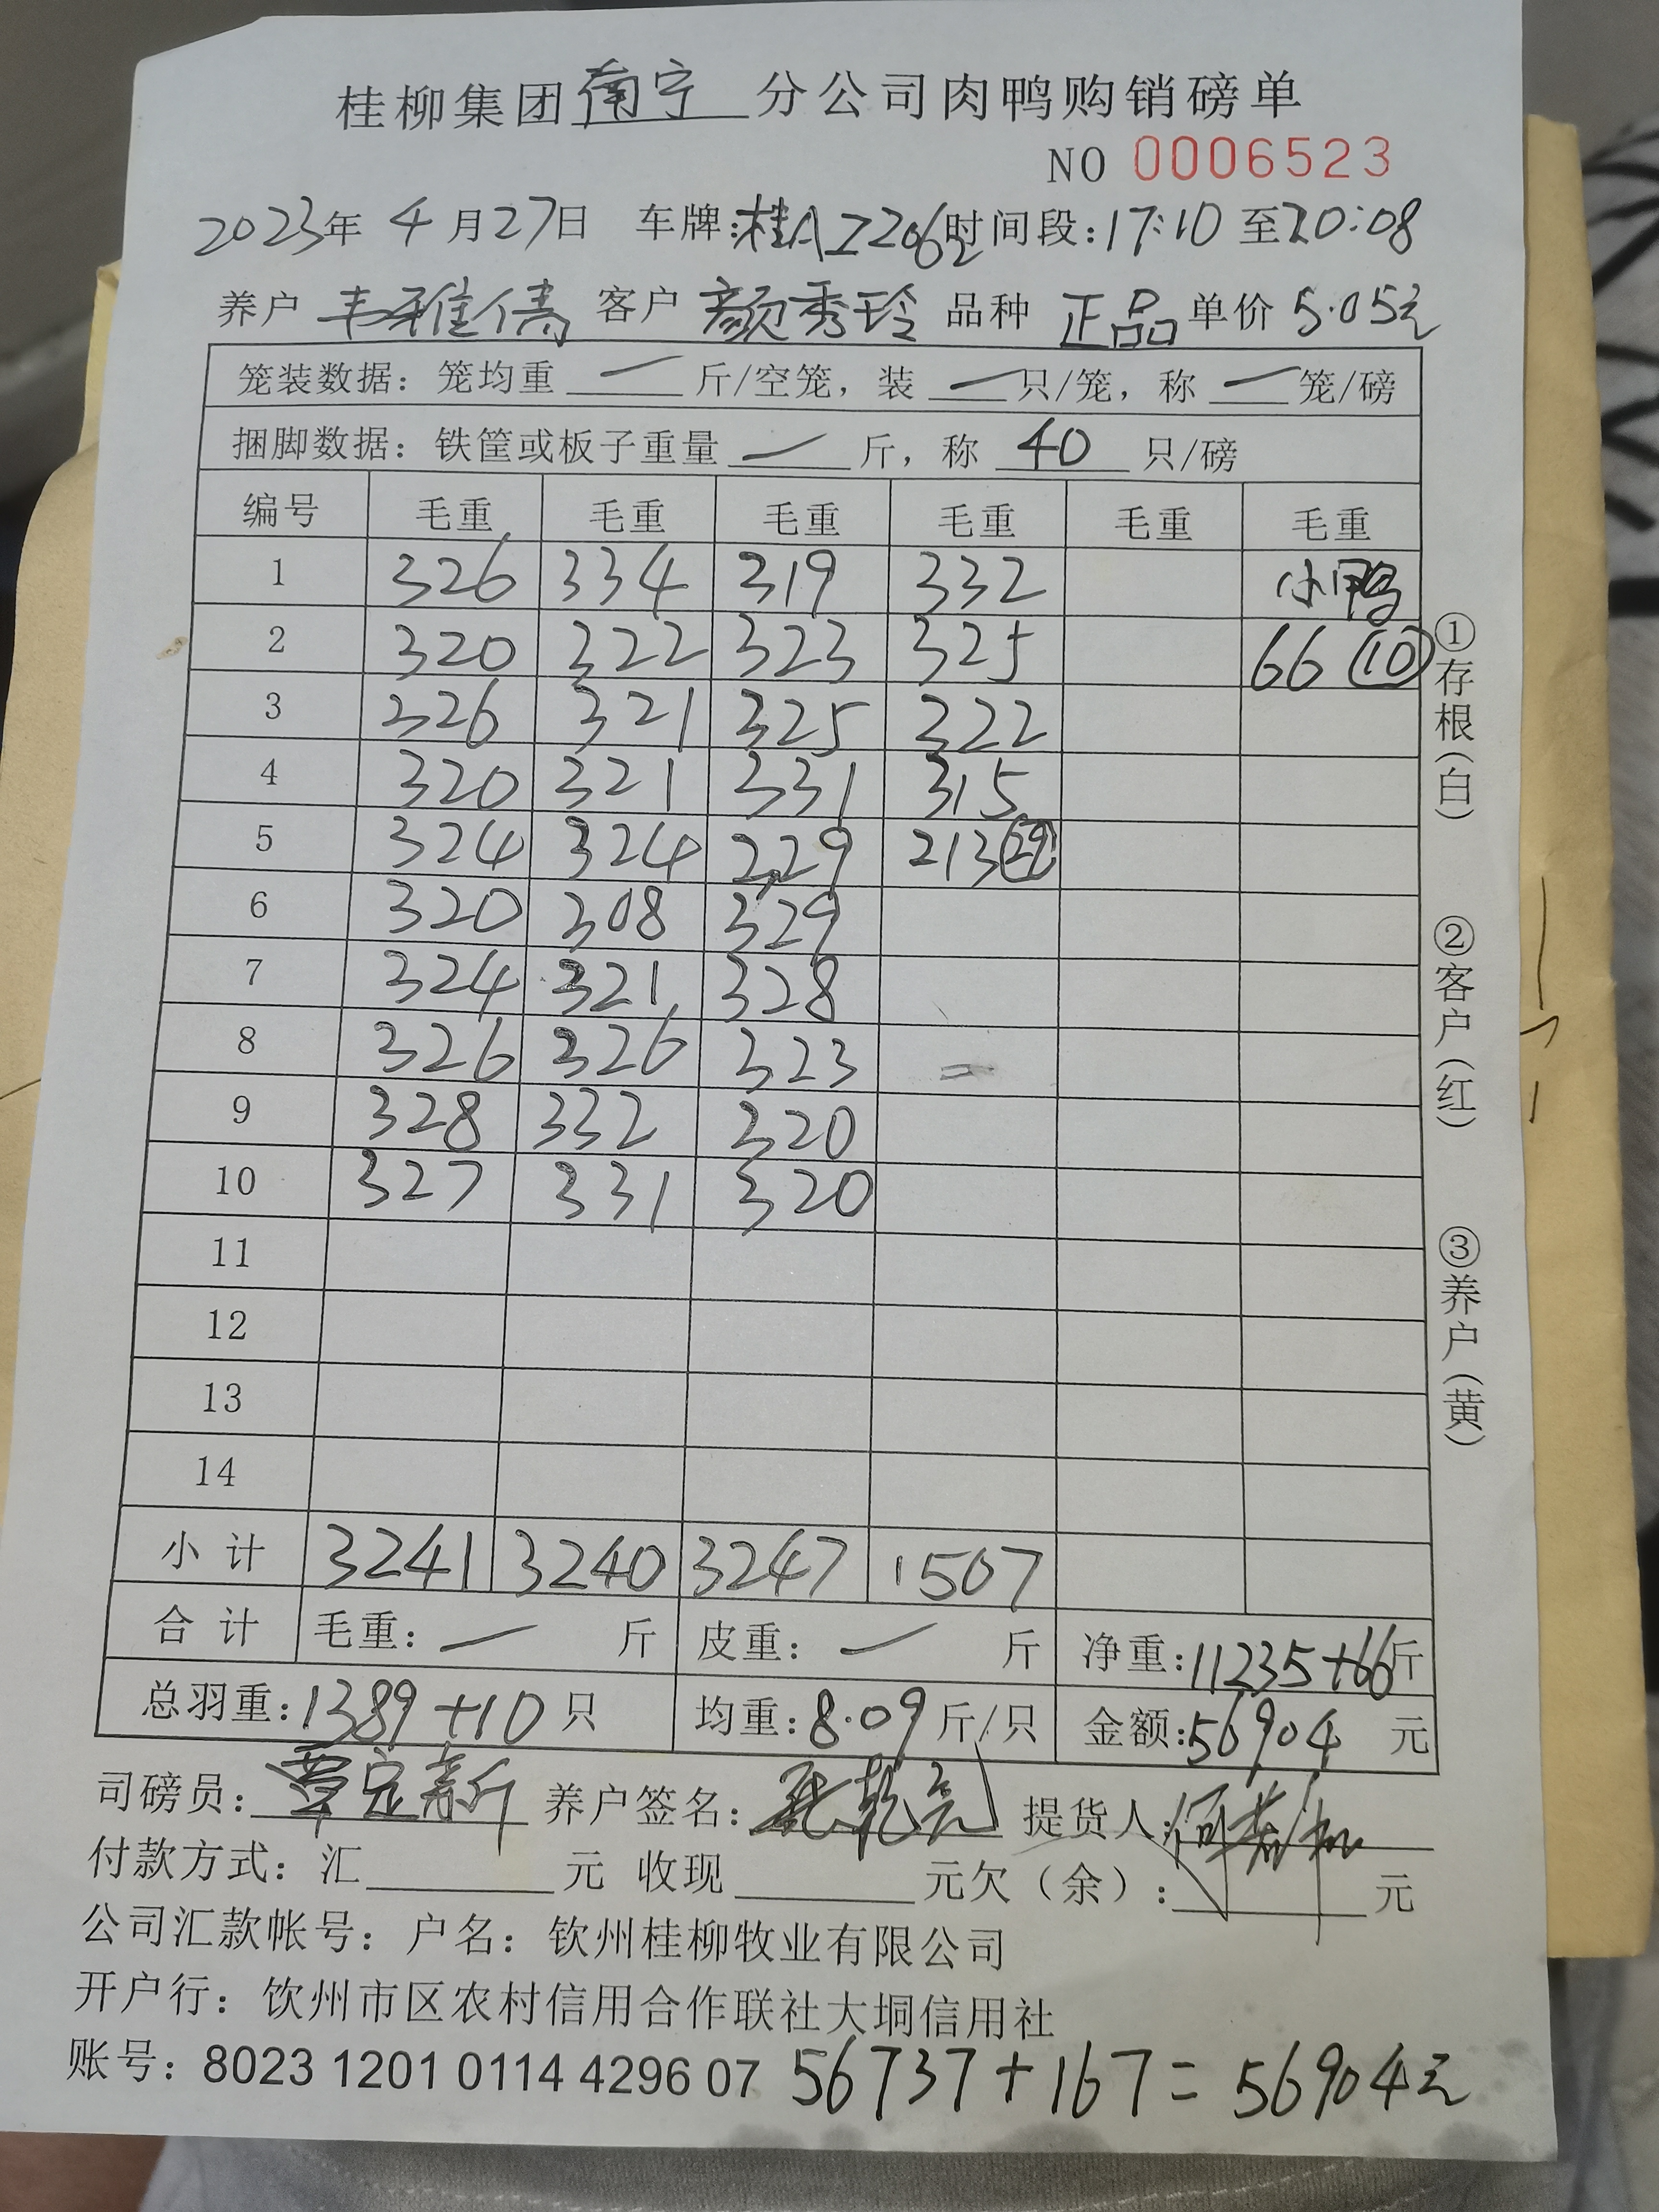 桂柳集团南宁分公司肉鸭购销磅单
NO 0006523
2023年 4月27日 车牌:桂AZ2062 时间段:17:10 至20:08
养户 韦雅倩 客户 颜秀玲 品种 正品 单价 5.05元
笼装数据: 笼均重 一 斤/空笼, 装 一 只/笼, 称 一 笼/磅
捆脚数据: 铁筐或板子重量 一 斤, 称 40 只/磅
编号 毛重 毛重 毛重 毛重 毛重 毛重
1 326 334 319 332 小鸭
2 320 322 323 325 66 (10)
3 326 321 325 322
4 320 321 331 315
5 324 324 329 213
6 320 308 329
7 324 321 328
8 326 326 323
9 328 332 320
10 327 331 320
11
12
13
14
小计 3241 3240 3247 1507
合计 毛重: 一 斤 皮重: 一 斤 净重:11235+66斤
总羽重:1389+10只 均重:8.09斤/只 金额:56904 元
司磅员: 养户签名: 提货人:
付款方式: 汇 元 收现 元欠(余): 元
公司汇款帐号: 户名: 钦州桂柳牧业有限公司
开户行: 钦州市区农村信用合作联社大垌信用社
账号: 8023 1201 0114 4296 07 56737+167=56904元
①存根(白)
②客户(红)
③养户(黄)